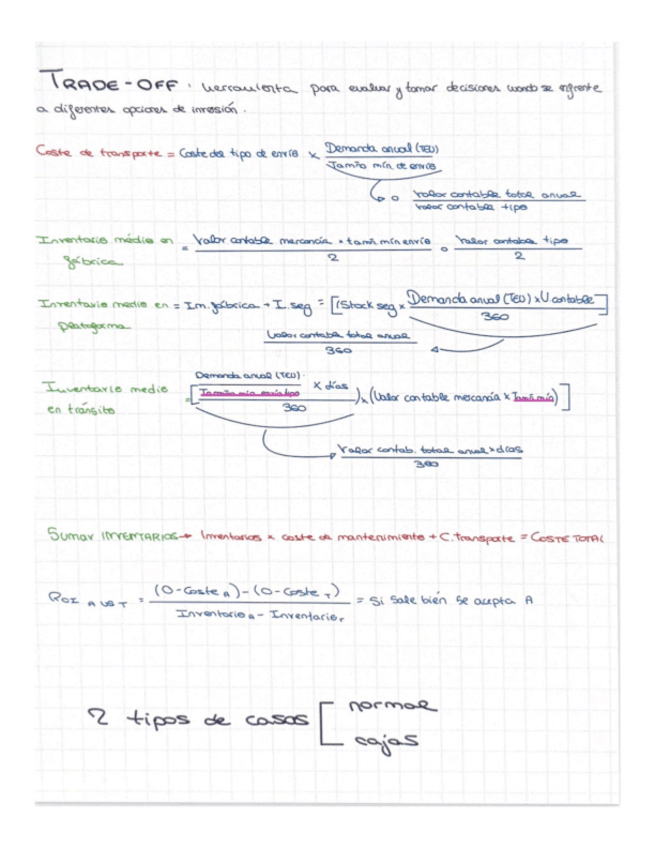 TRADE-OFF: herramienta para evaluar y tomar decisiones cuando se enfrente
a diferentes opciones de inversión.
Coste de transporte = Coste del tipo de envío × Demanda anual (TEU)
Tamño mín de envío
o Valor contable total anual
Valor contable tipo
Inventario médio en fábrica = Valor contable mercancía × tamñ mín envío o Valor contable tipo
2 2
Inventario medio en plataforma = Im. fábrica + I. seg = [(Stock seg × Demanda anual (TEU) × V contable]
360
Valor contable total anual
360
Demanda anual (TEU)
Inventario medio en tránsito = [Tamño mín envío tipo × días) × (Valor contable mercancía × Tamñ mín)]
360
Valor contab. total anual × días
360
Sumar INVENTARIOS → Inventarios × coste de mantenimiento + C. transporte = COSTE TOTAL
ROI A VS T = (0 - Coste A) - (0 - Coste T) = Si sale bién se acepta A
Inventario A - Inventario T
2 tipos de casos [ normal
cajas